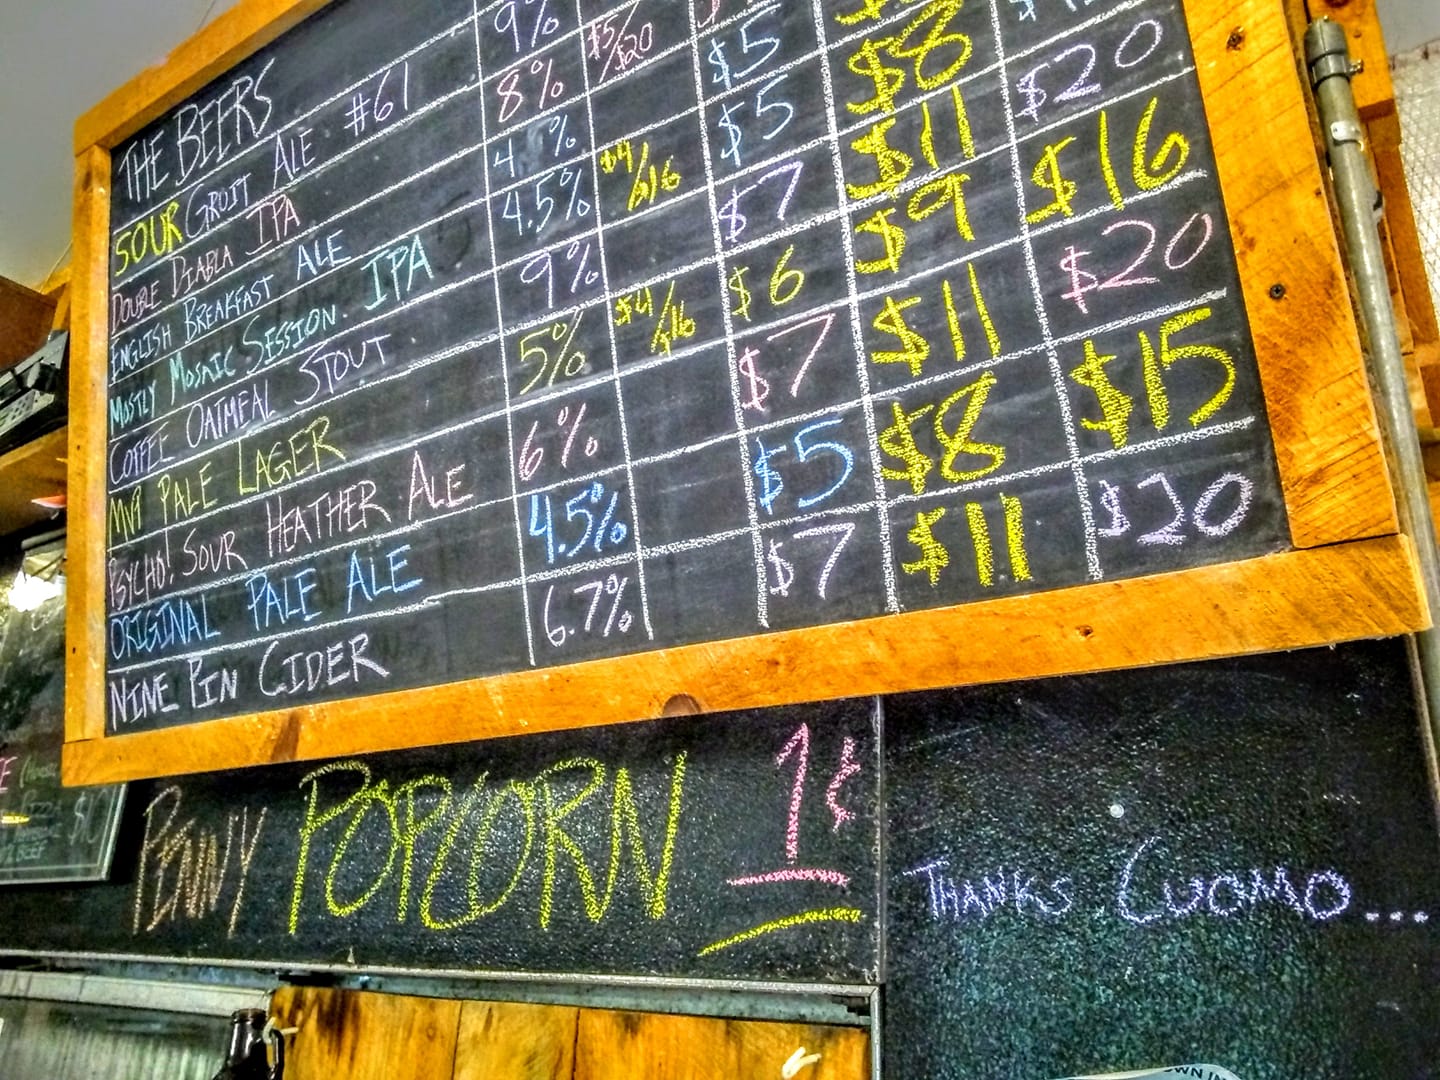 THE BEERS
SOUR GRUIT ALE #61 9%
DOUBLE DIABLA IPA 8% $5/$20
ENGLISH BREAKFAST ALE 4% $5
MOSTLY MOSAIC SESSION. IPA 4.5% $4/$16 $5 $8
COFFEE OATMEAL STOUT 9% $7 $11 $20
MVP PALE LAGER 5% $4/$16 $6 $9 $16
PSYCHO! SOUR HEATHER ALE 6% $7 $11 $20
ORIGINAL PALE ALE 4.5% $5 $8 $15
NINE PIN CIDER 6.7% $7 $11 $20
PENNY POPCORN 1¢
THANKS CUOMO...
BEEF